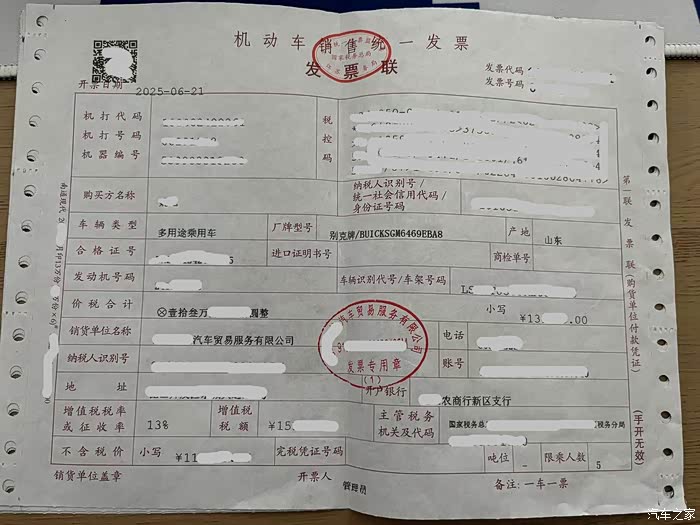 机动车销售统一发票
发票联
发票代码
发票号码
开票日期 2025-06-21
机打代码
机打号码
机器编号
税控码
购买方名称
纳税人识别号/统一社会信用代码/身份证号码
车辆类型 多用途乘用车 厂牌型号 别克牌/BUICKSGM6469EBA8 产地 山东
合格证号 进口证明书号 商检单号
发动机号码 车辆识别代号/车架号码
价税合计 ⊗壹拾叁万 圆整 小写 ¥13 .00
销货单位名称 汽车贸易服务有限公司 电话
纳税人识别号 账号
地址 开户银行 农商行新区支行
增值税税率或征收率 13% 增值税税额 ¥15 主管税务机关及代码 国家税务总 税务分局
不含税价 小写 ¥11 完税凭证号码 吨位 - 限乘人数 5
销货单位盖章 开票人 管理员 备注:一车一票
第一联 发票联(购货单位付款凭证)
(手开无效)
汽车贸易服务有限公司
发票专用章
(1)
汽车之家